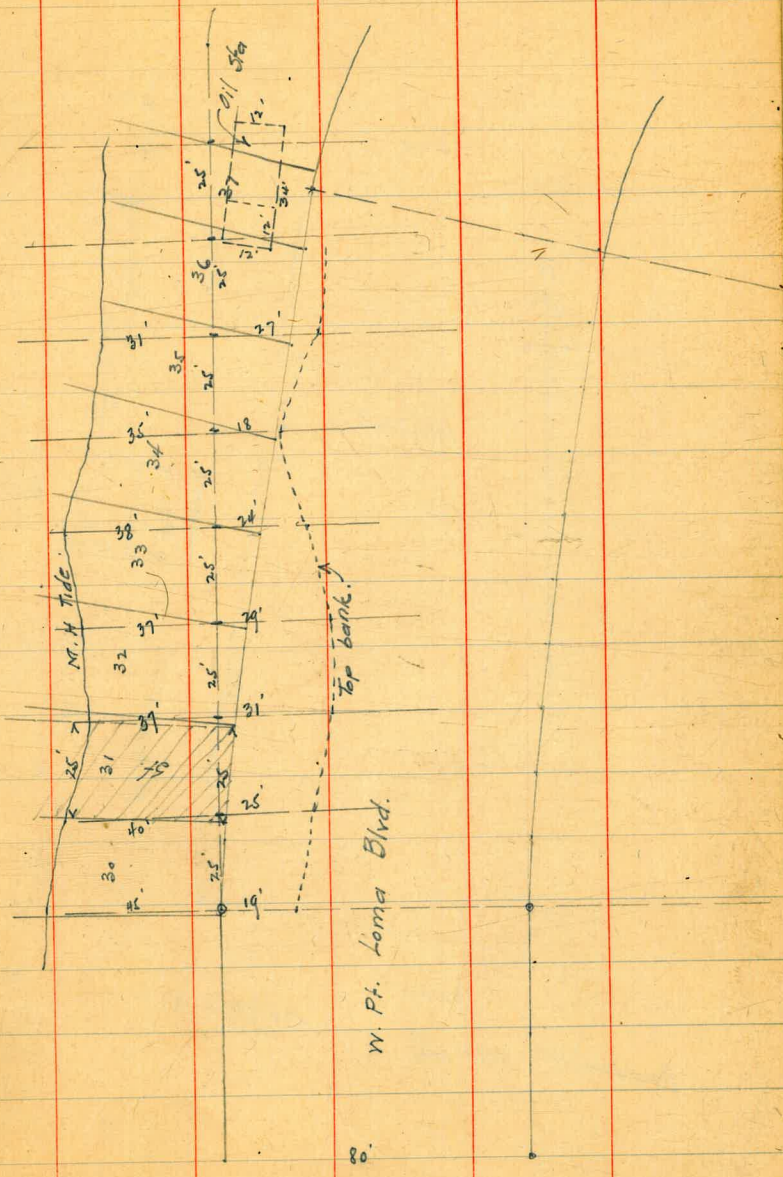 Oil Sta
12'
25'
37
34'
12'
12'
36
25'
31'
35
25'
27'
35'
34
25'
18
38'
33
25'
24'
M.H Tide
37'
32
25'
29'
Top bank.
39'
31'
25'
31
25'
25'
40'
30
25'
19'
W. Pt. Loma Blvd.
80'